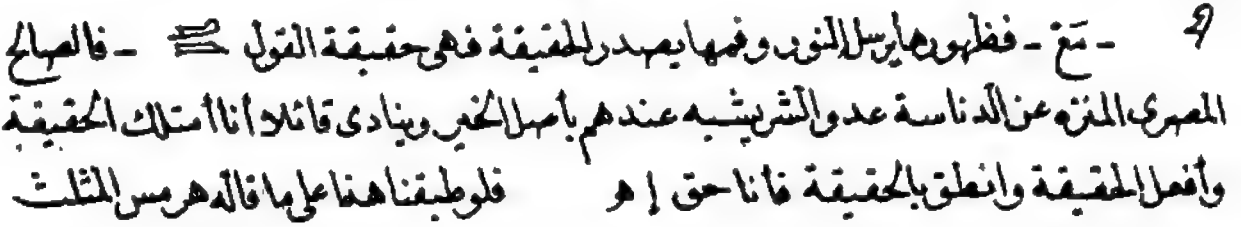 - مَعْ - فظهورها يرسل النور وفمها يصدر الحقيقة فهى حقيقة القول - فالصالح
المصرى المنزه عن الدناسة عدو الشر يشبه عندهم بأصل الخير وينادى قائلا أنا أمتلك الحقيقة
وأفعل الحقيقة وانطق بالحقيقة فأنا حق إ ه فلو طبقنا هذا على ما قاله هرمس المثلث